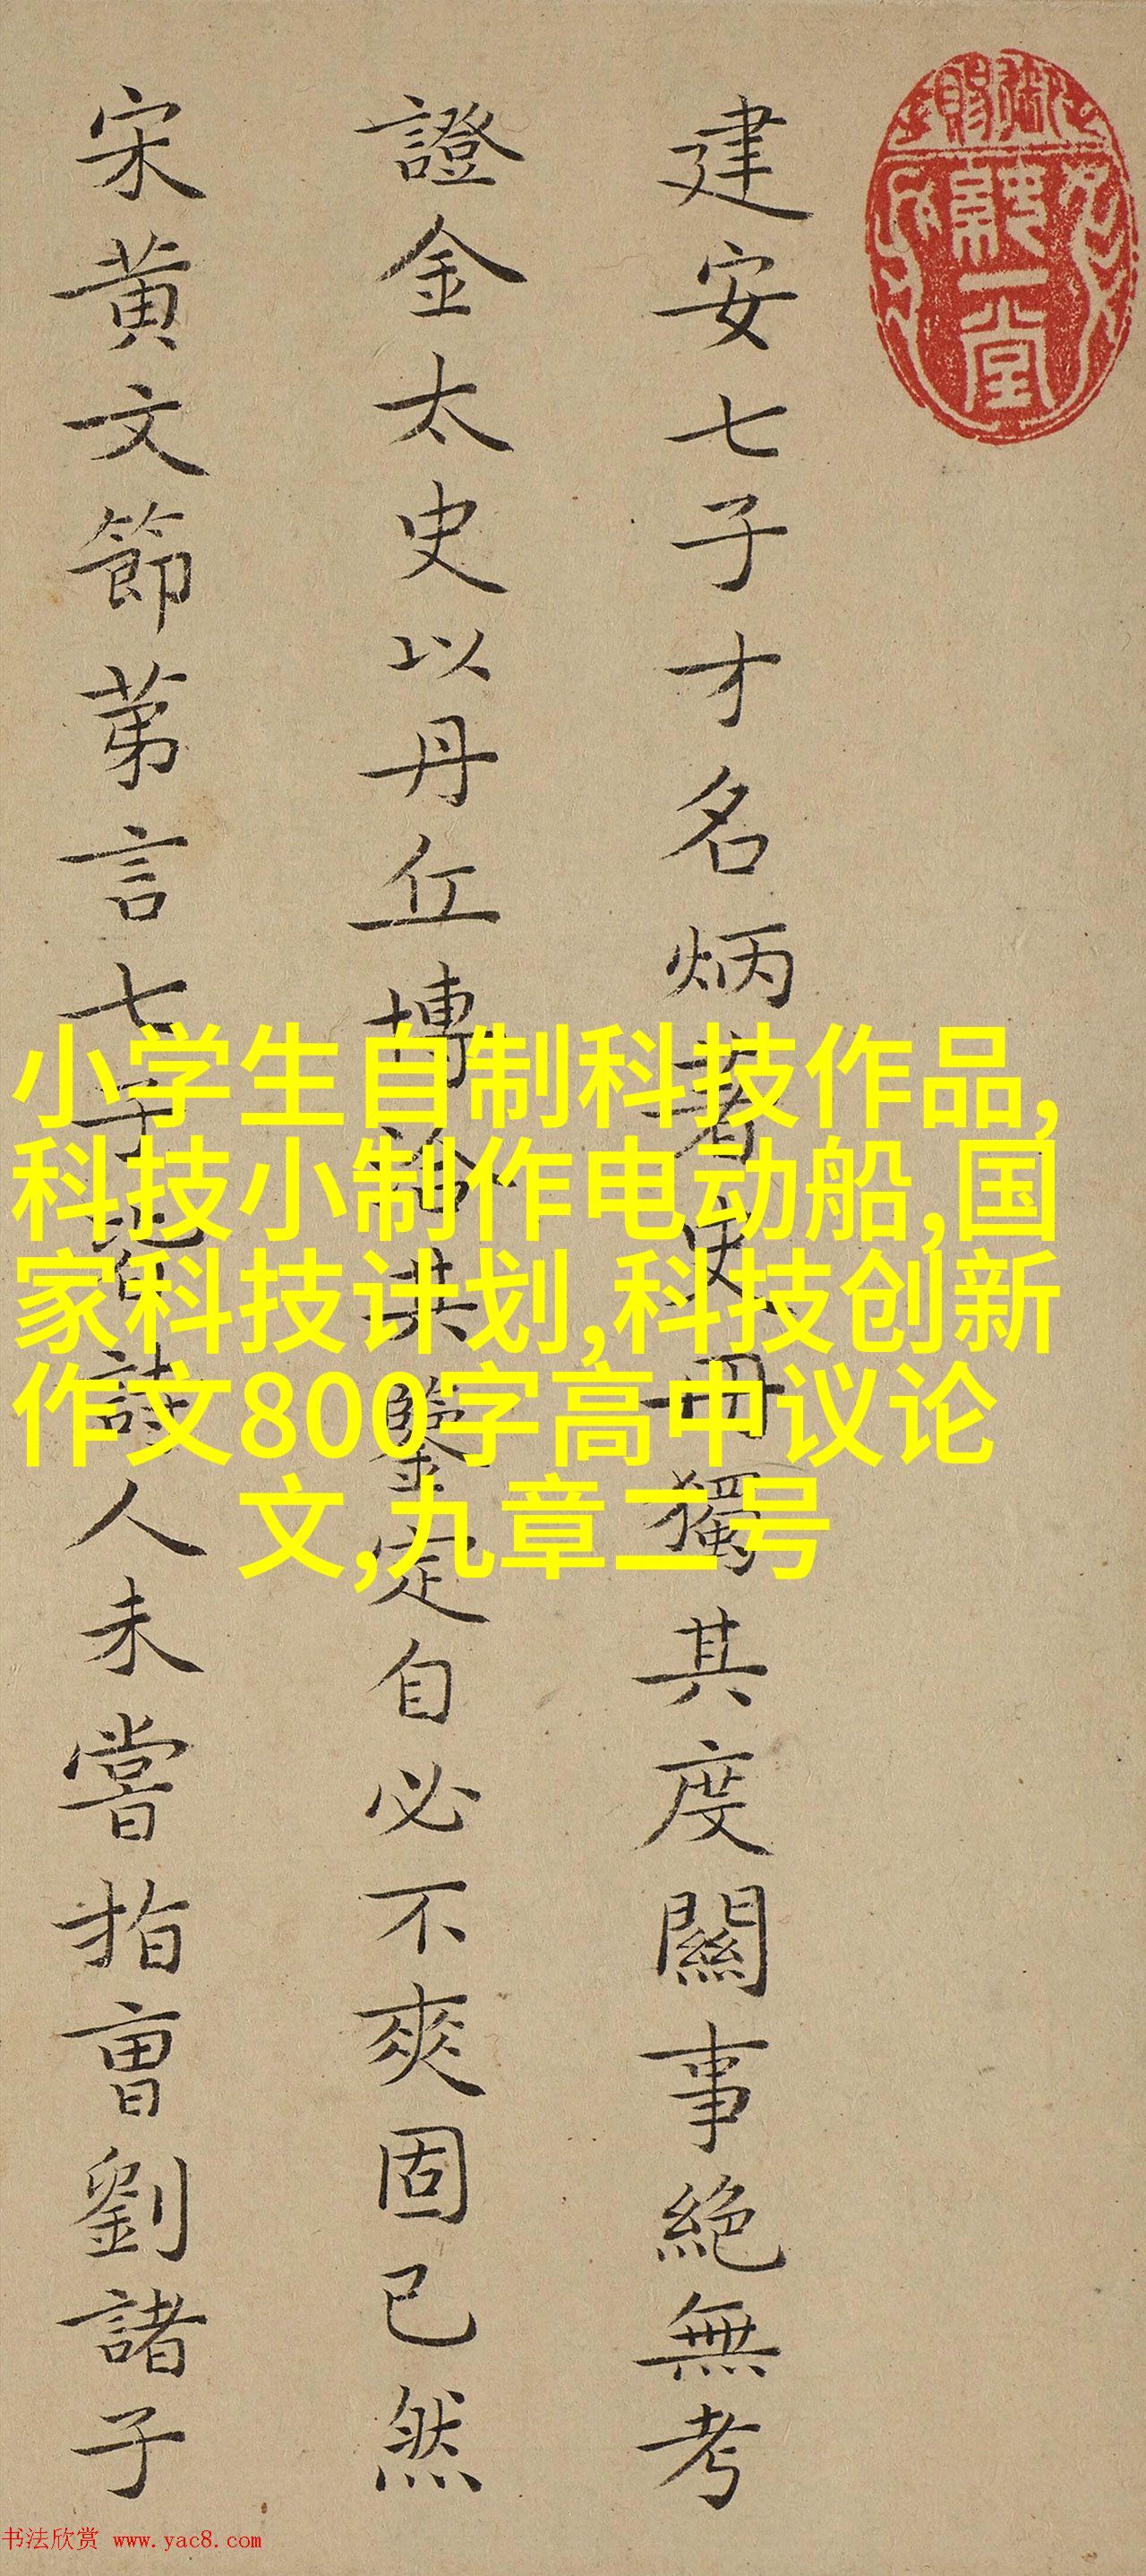 建安七子才名炳著史冊獨其度關事絕無考
證金太史以丹丘博洽其鑒定自必不爽固已然
宋黃文節苐言七子皆詩人未嘗指曹劉諸子
小学生自制科技作品,
科技小制作电动船,国
家科技计划,科技创新
作文800字高中议论
文,九章二号
书法欣赏 www.yac8.com